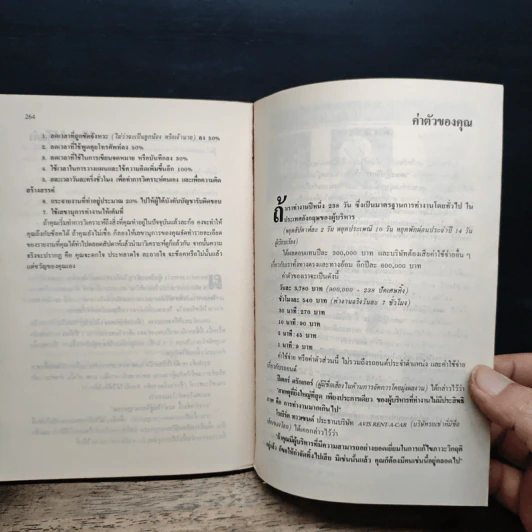 264
1. ลดเวลาที่ถูกขัดจังหวะ (ไม่ว่าจะเป็นลูกน้อง หรือเจ้านาย) ลง 50%
2. ลดเวลาที่ใช้พูดคุยโทรศัพท์ลง 50%
3. ลดเวลาที่ใช้ในการเขียนจดหมาย หรือบันทึกลง 50%
4. ใช้เวลาในการวางแผนและใช้ความคิดเพิ่มขึ้นอีก 100%
5. สละเวลาวันละครึ่งชั่วโมง เพื่อทำการวิเคราะห์ตนเอง และเพื่อความคิด
สร้างสรรค์
6. กระจายงานที่ทำอยู่ประมาณ 20% ไปให้ผู้ใต้บังคับบัญชารับผิดชอบ
7. ใช้เลขานุการทำงานให้เต็มที่
ถ้าคุณเริ่มทำการวิเคราะห์พิธีสิ่งที่คุณทำอยู่ในปัจจุบันแล้วละก็ คงจะทำให้
คุณถึงกับช็อคได้ ถ้าคุณยังไม่เชื่อ ก็ลองให้เลขานุการของคุณจดว่ารายละเอียด
ของรายงานที่คุณได้ทำไปตลอดสัปดาห์แล้วนำมาวิเคราะห์ดูก็แล้วกัน จากนั้นความ
จริงจะปรากฏ คือ คุณจะตกใจ ประหลาดใจ ละอายใจ จะช็อคหรือไม่นั้นแล้ว
แต่ขวัญของคุณเอง
ค่าตัวของคุณ
ถ้าเราทำงานปีหนึ่ง 238 วัน ซึ่งเป็นมาตรฐานการทำงานโดยทั่วไป ใน
ประเทศอังกฤษของผู้บริหาร
(หยุดสัปดาห์ละ 2 วัน หยุดประเพณี 10 วัน หยุดพักผ่อนประจำปี 14 วัน
ได้ผลตอบแทนปีละ 900,000 บาท และบริษัทต้องเสียค่าใช้จ่ายอื่น ๆ
เกี่ยวกับเราทั้งทางตรงและทางอ้อม อีกปีละ 600,000 บาท
ค่าตัวของเราจะเป็นดังนี้
วันละ 3,780 บาท (900,000 ÷ 238 ปัดเศษทิ้ง)
ชั่วโมงละ 540 บาท (ทำงานจริงวันละ 7 ชั่วโมง)
30 นาที: 270 บาท
10 นาที: 90 บาท
5 นาที: 45 บาท
1 นาที: 9 บาท
ค่าใช้จ่าย หรือค่าตัวส่วนนี้ ไม่รวมถึงรถยนต์ประจำตำแหน่ง และค่าใช้จ่าย
เกี่ยวกับรถยนต์
ปีเตอร์ ดรักเกอร์ (ผู้มีชื่อเสียงในด้านการจัดการโดยมุ่งผลงาน) ได้กล่าวไว้ว่า
"สาเหตุที่ยิ่งใหญ่ที่สุด เพียงประการเดียว ของผู้บริหารที่ทำงานไม่มีประสิทธิ
ภาพ คือ การทำงานมากเกินไป"
โรเบิร์ต ทาวเซนด์ ประธานบริษัท AVIS RENT-A-CAR (บริษัทรถเช่าที่มีชื่อ
ได้เคยกล่าวไว้ว่า
"ถ้าคุณมีผู้บริหารที่มีความสามารถอย่างยอดเยี่ยมในการแก้ไขภาวะวิกฤติ
อยู่แล้ว ก็จงให้กำจัดทิ้งไปเสีย มิเช่นนั้นแล้ว คุณก็ต้องมีคนเช่นนี้อยู่ตลอดไป"